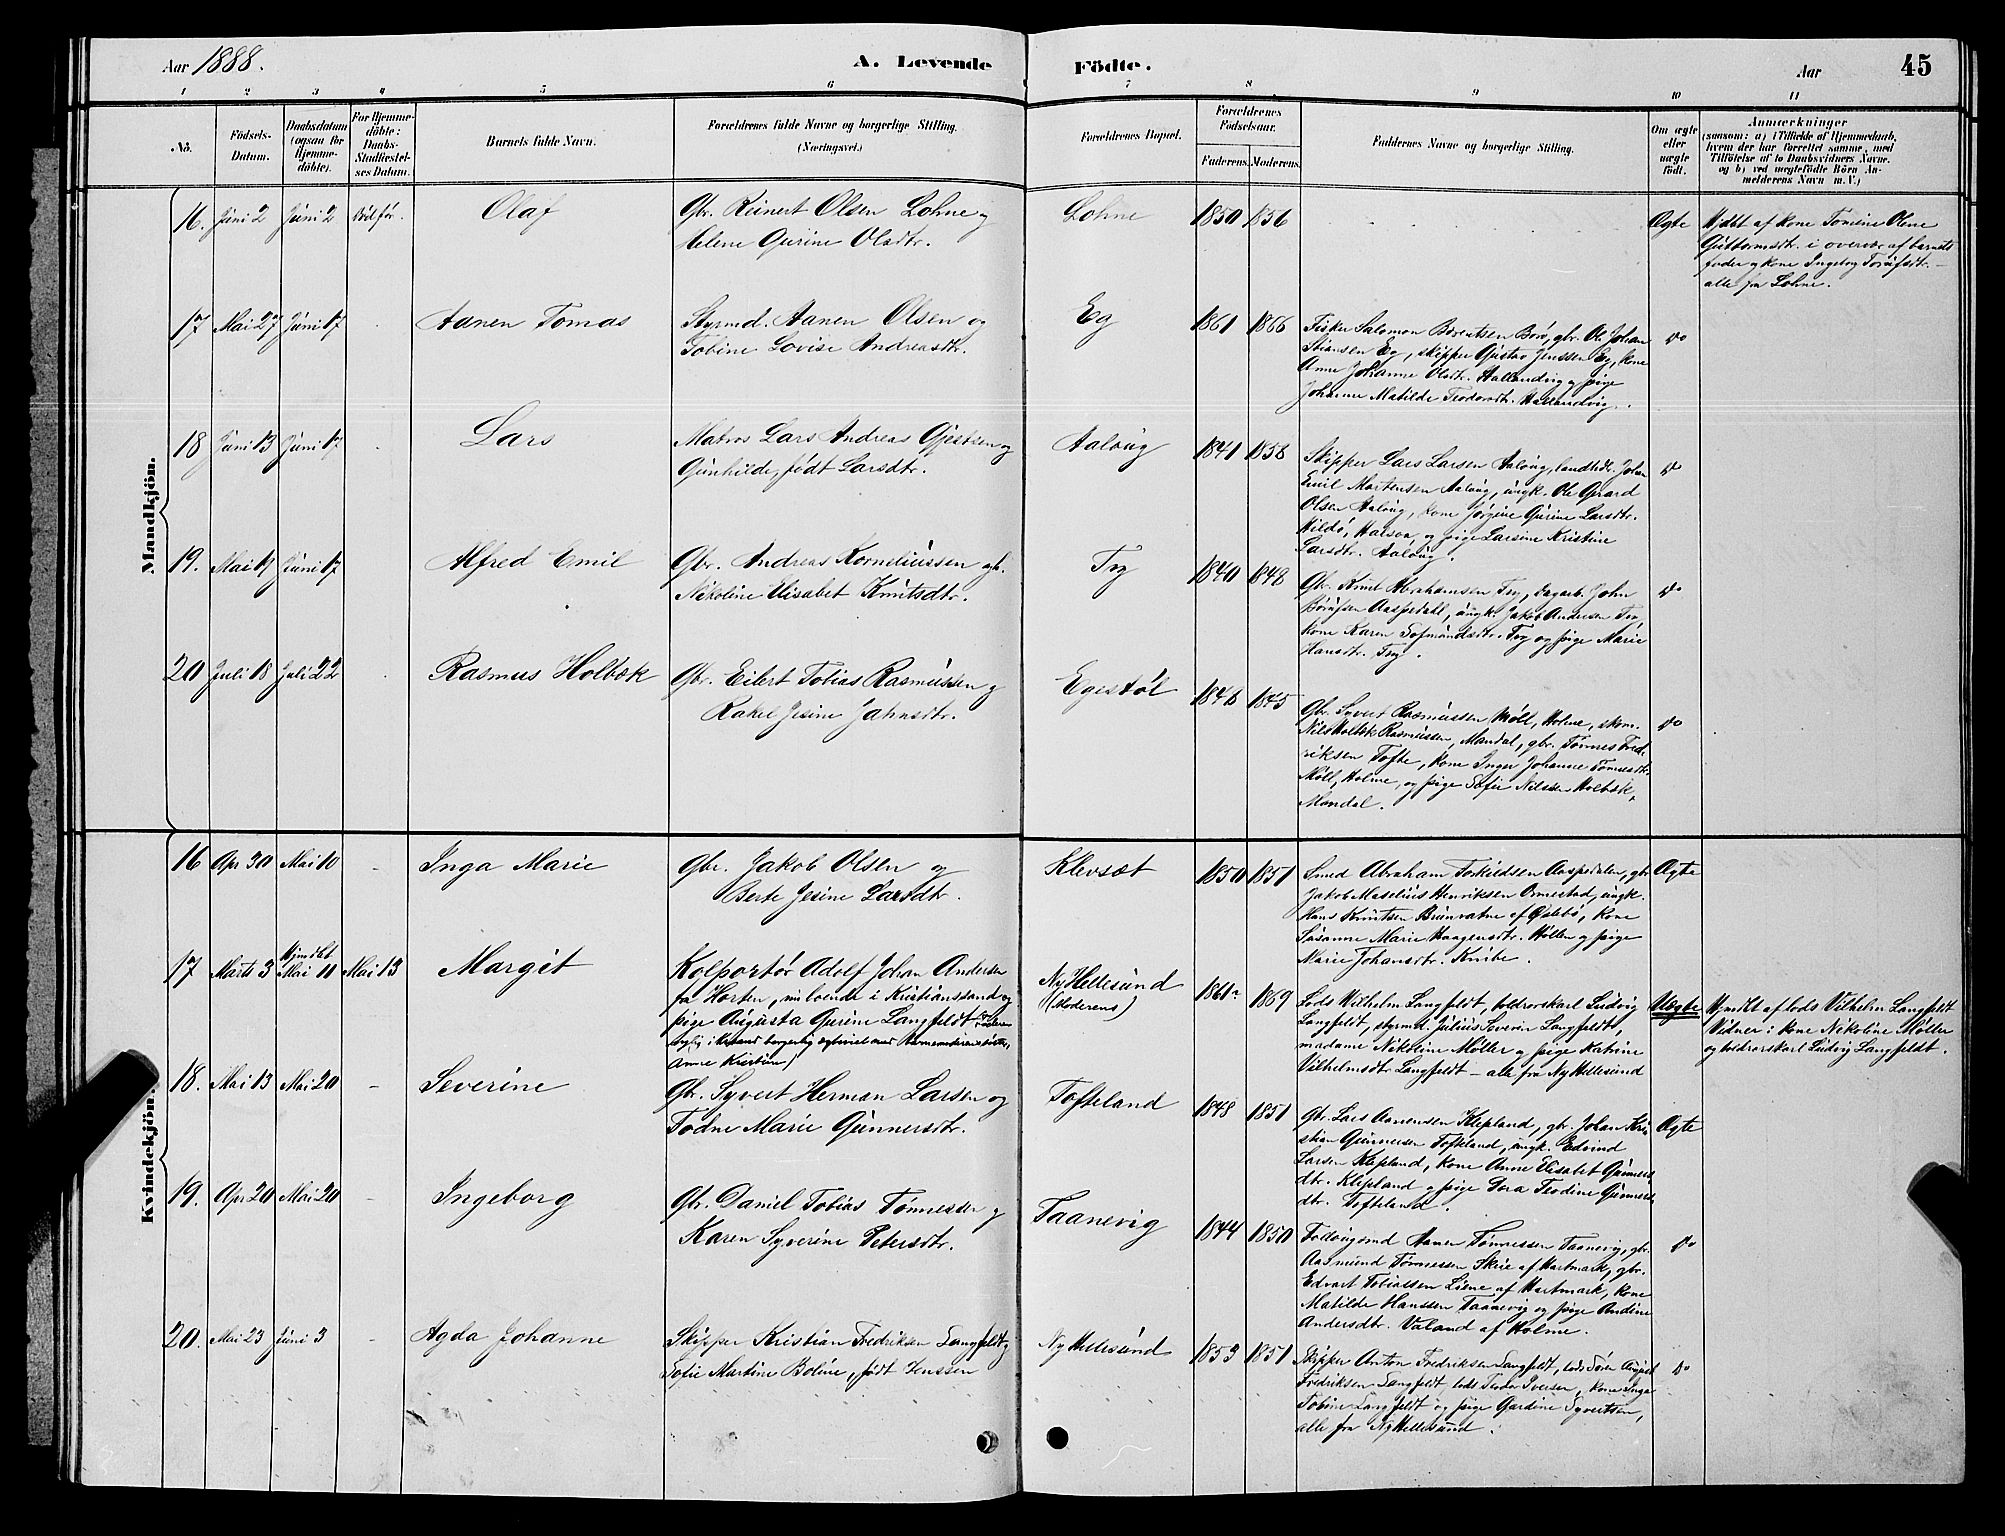 Aar 1888.
A. Levende
Födte.
Aar
45
1 2 3 4 5 6 7 8 9 10 11
No.
Födsels-
Datum.
Daabsdatum
(ogsaa for
Hjemme-
döbte).
For Hjemme-
döbte:
Daabs-
Stadfæstel-
ses Datum.
Barnets fulde Navn.
Forældrenes fulde Navne og borgerlige Stilling.
(Næringsvei.)
Forældrenes Bopæl.
Forældrenes
Födselsaar.
Faderens. Moderens.
Faddernes Navne og borgerlige Stilling.
Om ægte
eller
uægte
födt.
Anmærkninger
(saasom: a) i Tilfælde af Hjemmedaab,
hvem der har forrettet samme, med
Tilföielse af to Daabsvidners Navne.
og b) ved uegtefödte Börn An-
melderens Navn m. V.)
Mandkjön.
16. Juni 2 Juni 2 Olaf
Gbr. Reinert Olsen Lohne og
Helene Gurine Olsdtr.
Lohne 1850 1856
Ægte
Hjdøbt af kone Tomine Olene
Guttormsdtr. i overvær af barnets
fader og kone Ingeborg
alle fra Lohne.
17 Mai 27 Juni 17 Aanen Tomas
Styrmd. Aanen Olsen og
Tobine Lovise Andreasdtr.
Eg 1861 1866
Fisker Salomon Berentsen Borø, gbr. Ole Johan
Stiansen Eg, skipper Gustav Jenssen Eg, kone
Anne Johanne Olsdtr. Hallandvig og pige
Johanne Matilde Teodorsdtr. Hallandvig.
do
18 Juni 13 Juni 17 Lars
Matros Lars Andreas Gjertsen og
Gunhilde, født Larsdtr.
Aaloug 1841 1858
Skipper Lars Larsen Aaloug, landhdl. Johan
Emil Mortensen Aaloug, ungk. Ole Gerard
Olsen Aaloug, kone Jørgine Gurine Larsdtr.
Hildø, Halsaa, og pige Larsine Kristine
Larsdtr. Aaloug.
do
19. Mai 19 Juni 17 Alfred Emil
Gbr. Andreas Korneliussen og h.
Nikoline Elisabet Knutsdtr.
Try 1840 1848
Gbr. Knud Abrahamsen Try, Dagarb. John
Børufsen Aaspedahl, ungk. Jakob Andersen Try,
kone Karen Sofmundsdtr. Try og pige Marie
Hansdtr. Try.
do
20 Juli 18 Juli 22 Rasmus Holbæk
Gbr. Eilert Tobias Rasmussen og
Rakel Jesine Jahnsdtr.
Egestøl 1846 1845
Gbr. Syvert Rasmussen Møll, Holme, skom.
Nils Holbæk Rasmussen, Mandal, gbr. Tønnes Fred-
riksen Tofte, kone Inger Johanne Tønnesdtr.
Møll, Holme, og pige Sofie Nilssen Holbæk,
Mandal.
do
Kvindekjön.
16 Apr 30 Mai 10 - Inga Marie
Gbr. Jakob Olsen og
Berte Jesine Larsdtr.
Klevsæt 1850 1851
Smed Abraham Torkildsen Aaspedalen, gbr
Jakob Maselius Henriksen Ormestad, ungk.
Hans Knutsen Brunvatne af Øslebø, kone
Susanne Marie Haagensdtr. Høllen og pige
Marie Johansdtr. Knibe.
Ægte
17 Marts 3 Hjmdøbt
Mai 11 Mai 13 Margit
Kolportør Adolf Johan Andersen
fra Horten, nu boende i Kristianssand og
pige Augusta Gurine Langfeldt
Anne Kristine)
Ny Hellesund
(Moderens) 1861 1869
Lods Wilhelm Langfeldt, toldrorskarl Ludvig
Langfeldt, styrmd. Julius Severin Langfeldt,
madame Nikoline Møller og pige Katrine
Vilhelmsdtr Langfeldt - alle fra Ny Hellesund
Uægte
Hjmdøbt af lods Vilhelm Langfeldt
Vidner: kone Nikoline Møller
og toldrorskarl Ludvig Langfeldt.
18. Mai 13 Mai 20 - Severine
Gbr. Syvert Herman Larsen og
Todne Marie Gunnersdtr.
Tofteland 1848 1851
Gbr. Lars Aanensen Klepland, gbr. Johan Kri-
stian Gunnersen Tofteland, ungk. Edvind
Larsen Klepland, kone Anne Elisabet Gunners
dtr. Klepland og pige Dora Teodine Gunners
dtr. Tofteland.
Ægte
19. Apr 20 Mai 20 - Ingeborg
Gbr. Daniel Tobias Tønnessen og
Karen Syverine Petersdtr.
Taanevig 1844 1850
Fodougsmd Aanen Tønnessen Taanevig, gbr.
Aasmund Tønnessen Skeie af Hartmark, gbr.
Edvart Tobiassen Liene af Hartmark, kone
Matilde Hanssen Taanevig og pige Andine
Andersdtr. Valand af Holme.
do
20. Mai 23 Juni 3 - Agda Johanne
Skipper Kristian Fredriksen Langfeldt og
Sofie Martine Boline, født Jenssen
Ny Hellesund 1853 1851
Skipper Anton Fredriksen Langfeldt, lods Søren August
Fredriksen Langfeldt, lods Teodor Iversen, kone Inga
Tobine Langfeldt og pige Gardine Syvertsen,
alle fra Ny Hellesund.
do